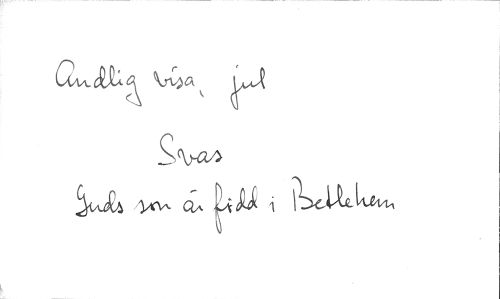 Andlig visa, jul
Svas
Guds son är född i Betlehem